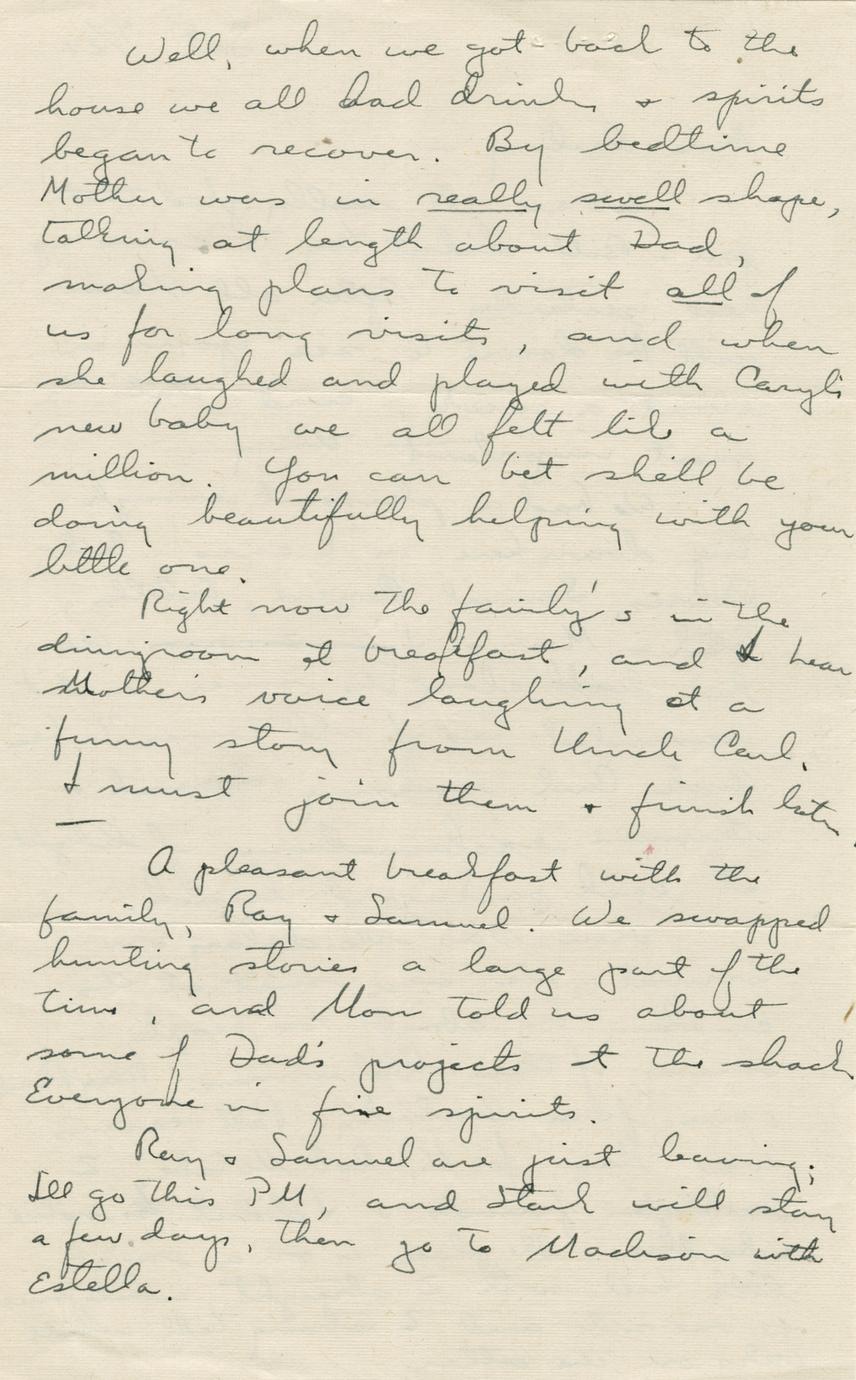 Well, when we got back to the
house we all had drinks & spirits
began to recover. By bedtime
Mother was in really swell shape,
talking at length about Dad,
making plans to visit all of
us for long visits, and when
she laughed and played with Caryl's
new baby we all felt like a
million. You can bet she'll be
doing beautifully helping with your
little one.
Right now the family's in the
diningroom at breakfast, and I hear
Mother's voice laughing at a
funny story from Uncle Carl.
I must join them & finish later.
—
A pleasant breakfast with the
family, Ray & Samuel. We swapped
hunting stories a large part of the
time, and Mom told us about
some of Dad's projects at the shack.
Everyone in fine spirits.
Ray & Samuel are just leaving;
I'll go this PM, and Stark will stay
a few days, then go to Madison with
Estella.